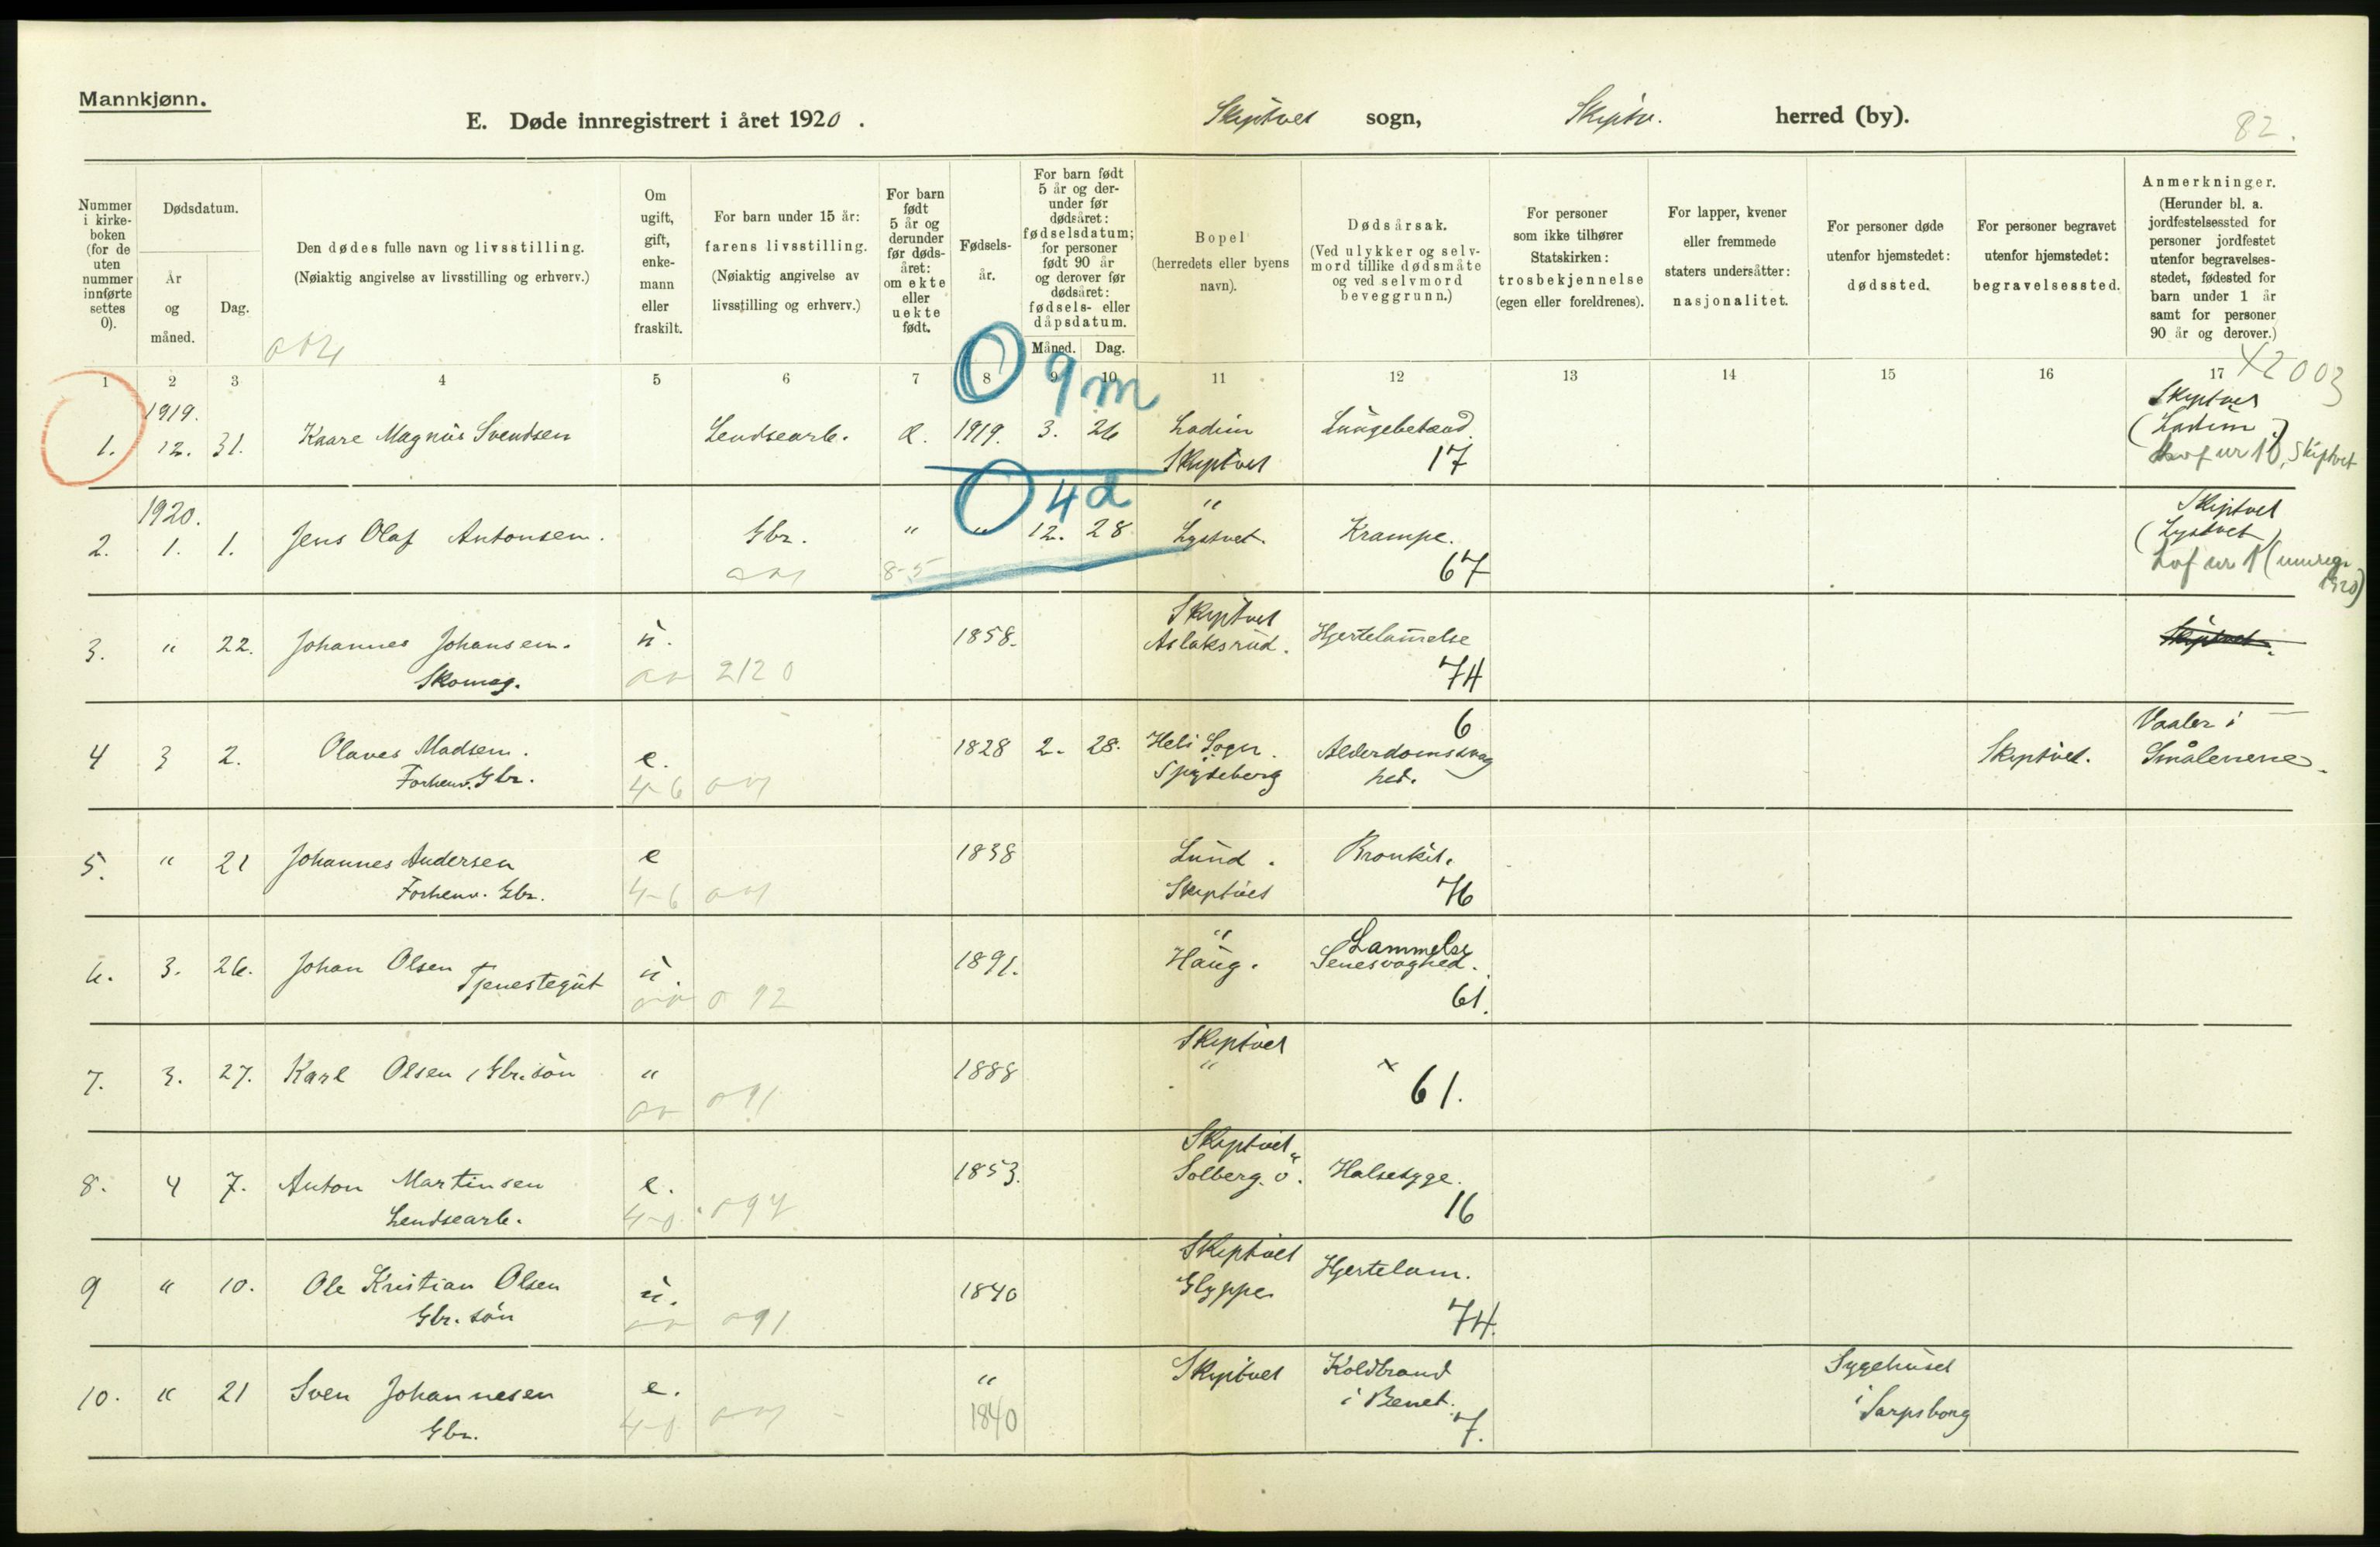 Mannkjønn.
E. Døde innregistrert i året 1920.
Skiptvet sogn, Skiptv. herred (by).
82.
Nummer i kirkeboken (for de uten nummer innførte settes 0).
Dødsdatum.
År og måned.
Dag.
Den dødes fulle navn og livsstilling.
(Nøiaktig angivelse av livsstilling og erhverv.)
Om ugift, gift, enkemann eller fraskilt.
For barn under 15 år: farens livsstilling.
(Nøiaktig angivelse av livsstilling og erhverv.)
For barn født 5 år og derunder før dødsåret: om ekte eller uekte født.
Fødselsår.
For barn født 5 år og derunder før dødsåret: fødselsdatum; for personer født 90 år og derover før dødsåret: fødsels- eller dåpsdatum.
Måned. Dag.
Bopel (herredets eller byens navn).
Dødsårsak.
(Ved ulykker og selvmord tillike dødsmåte og ved selvmord beveggrunn.)
For personer som ikke tilhører Statskirken: trosbekjennelse (egen eller foreldrenes).
For lapper, kvener eller fremmede staters undersåtter: nasjonalitet.
For personer døde utenfor hjemstedet: dødssted.
For personer begravet utenfor hjemstedet: begravelsessted.
Anmerkninger.
(Herunder bl. a. jordfestelsessted for personer jordfestet utenfor begravelsesstedet, fødested for barn under 1 år samt for personer 90 år og derover.)
1 2 3 4 5 6 7 8 9 10 11 12 13 14 15 16 17
0 9 m
x2003
1. 1919. 12. 31. Kaare Magnus Svendsen Lendsearb. 1919. 3. 26 Ladim Skiptvet Lungebetænd. 17 Skiptvet (Ladim)
0 4 d
2. 1920. 1. 1. Jens Olaf Antonsen. Gbr. " " 12. 28 " Lystvet. Krampe. 67 Skiptvet (Lystvet)
8-5
3. " 22. Johannes Johansen. Skomag. u. 2120 1858. Skiptvet Aslaksrud. Hjertelammelse 74 Skiptvet.
4 3 2. Olaves Madsen. Forhenv. Gbr. e. 4-6 1828 2. 28. Heli Sogn. Spydeberg 6 Alderdomssvaghed. Skiptvet. Vaaler i Smålenene.
5. " 21 Johannes Andersen Forhenv. Gbr. e 4-6 1838 Lund. Skiptvet Bronkit. 76
6. 3. 26. Johan Olsen Tjenestegut u. 1891. " Haug. Lammelse Senesvaghed. 61.
7. 3. 27. Karl Olsen, Gbr.søn " 1888 Skiptvet " x 61.
8. 4 7. Anton Martinsen Lendsearb. e. 1853. Skiptvet Solberg. ø. Halsesyge. 16
9 " 10. Ole Kristian Olsen Gbr. søn u. 1840 Skiptvet Glyppe. Hjertelam. 74.
10. " 21 Sven Johannesen Gbr. e. " 1840 Skiptvet Koldbrand i Benet. 7. Sygehuset i Sarpsborg